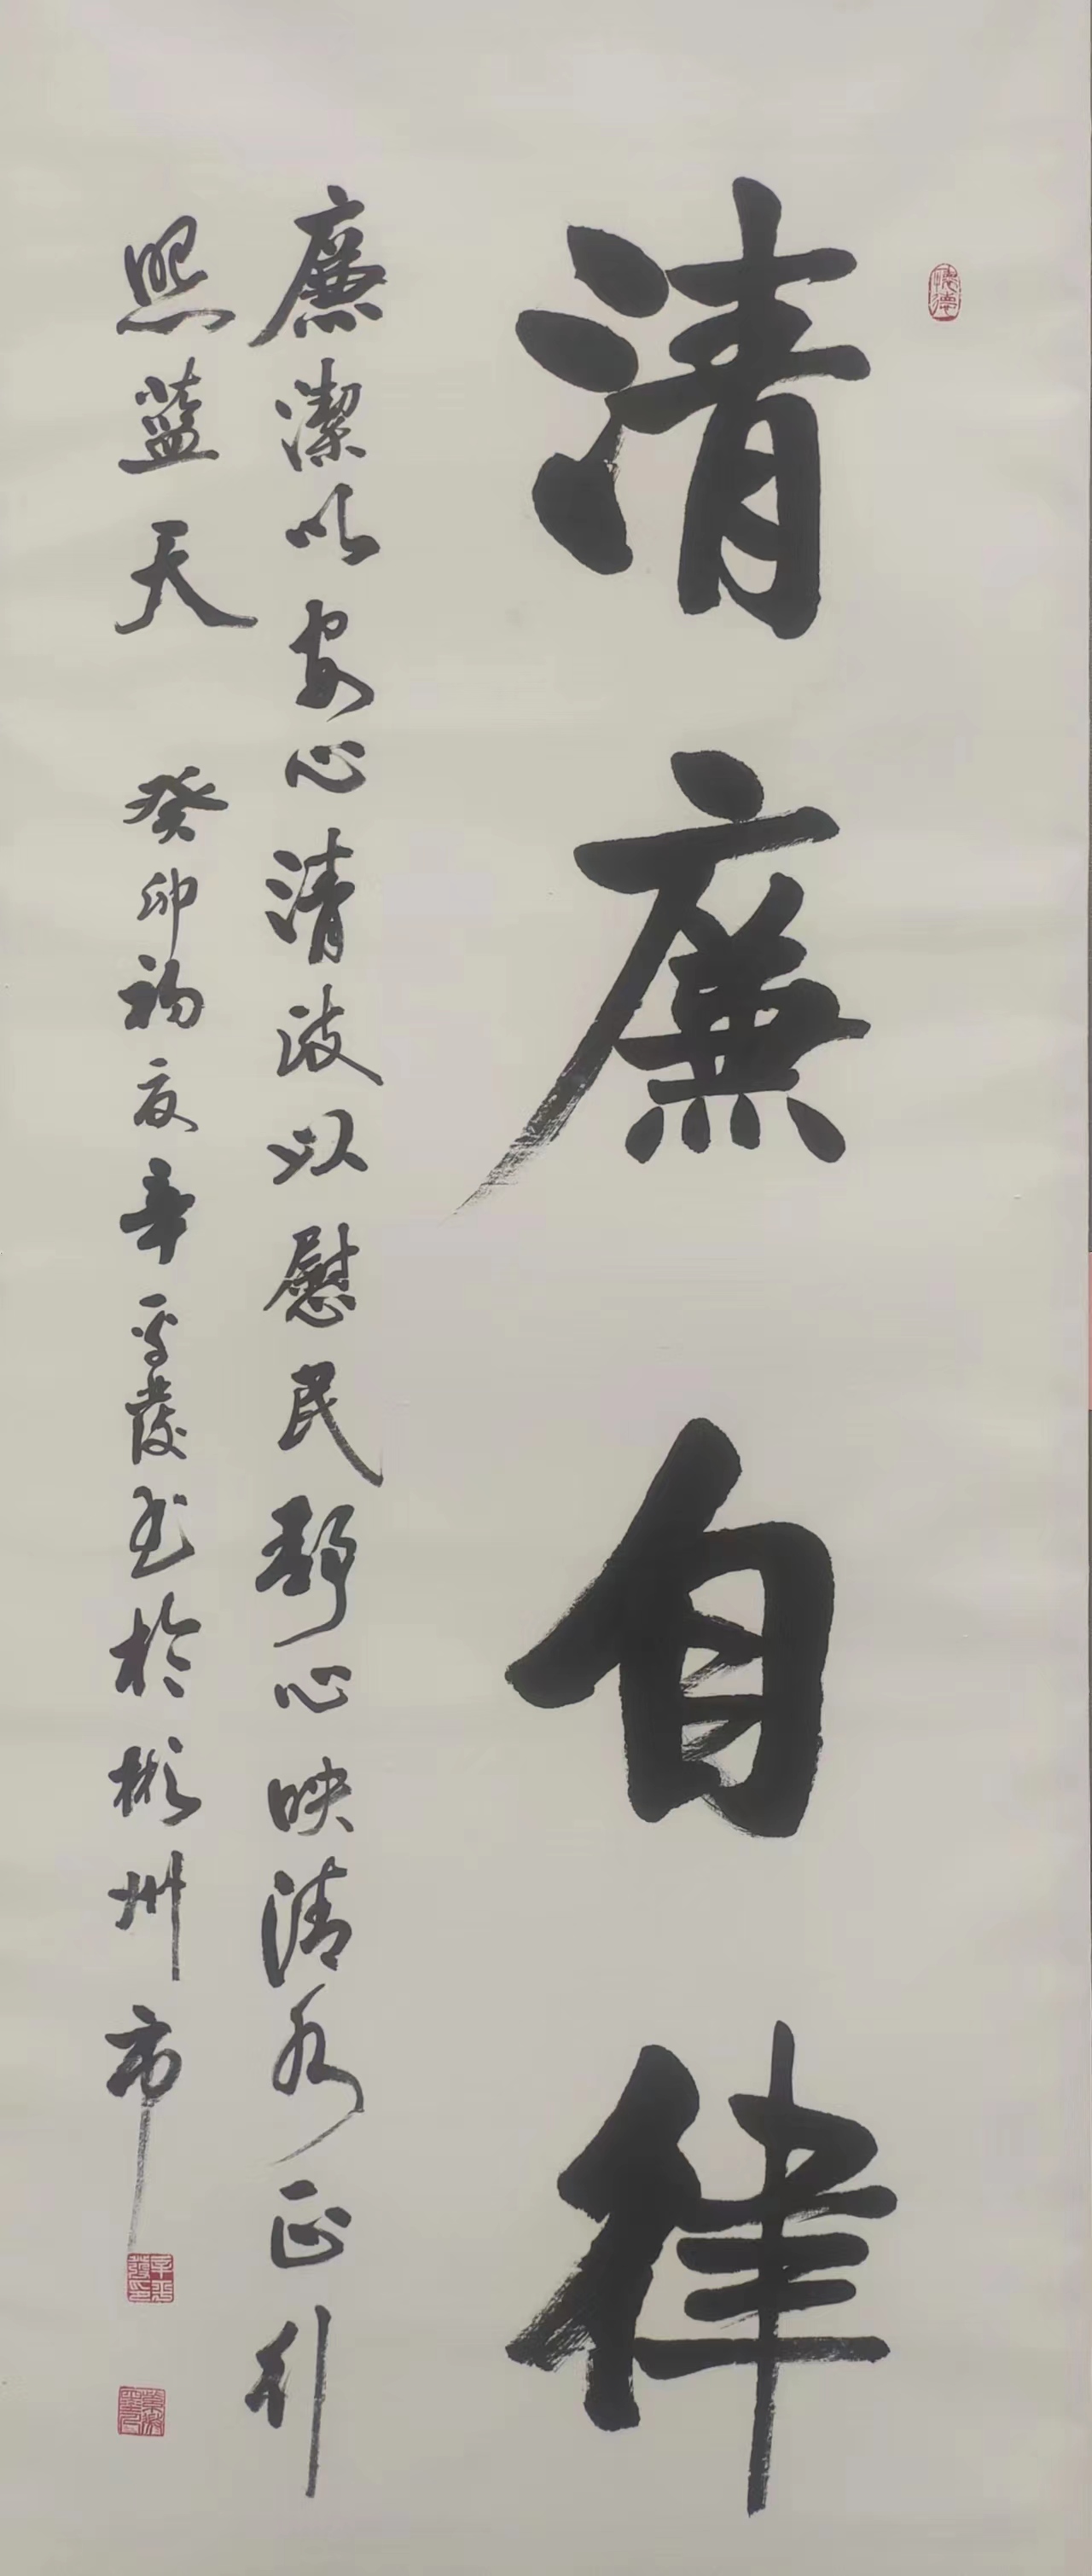 清廉自律
廉潔以安心清波以慰民靜心映清水正行
照蓝天 癸卯初夏辛平발书於彬州市